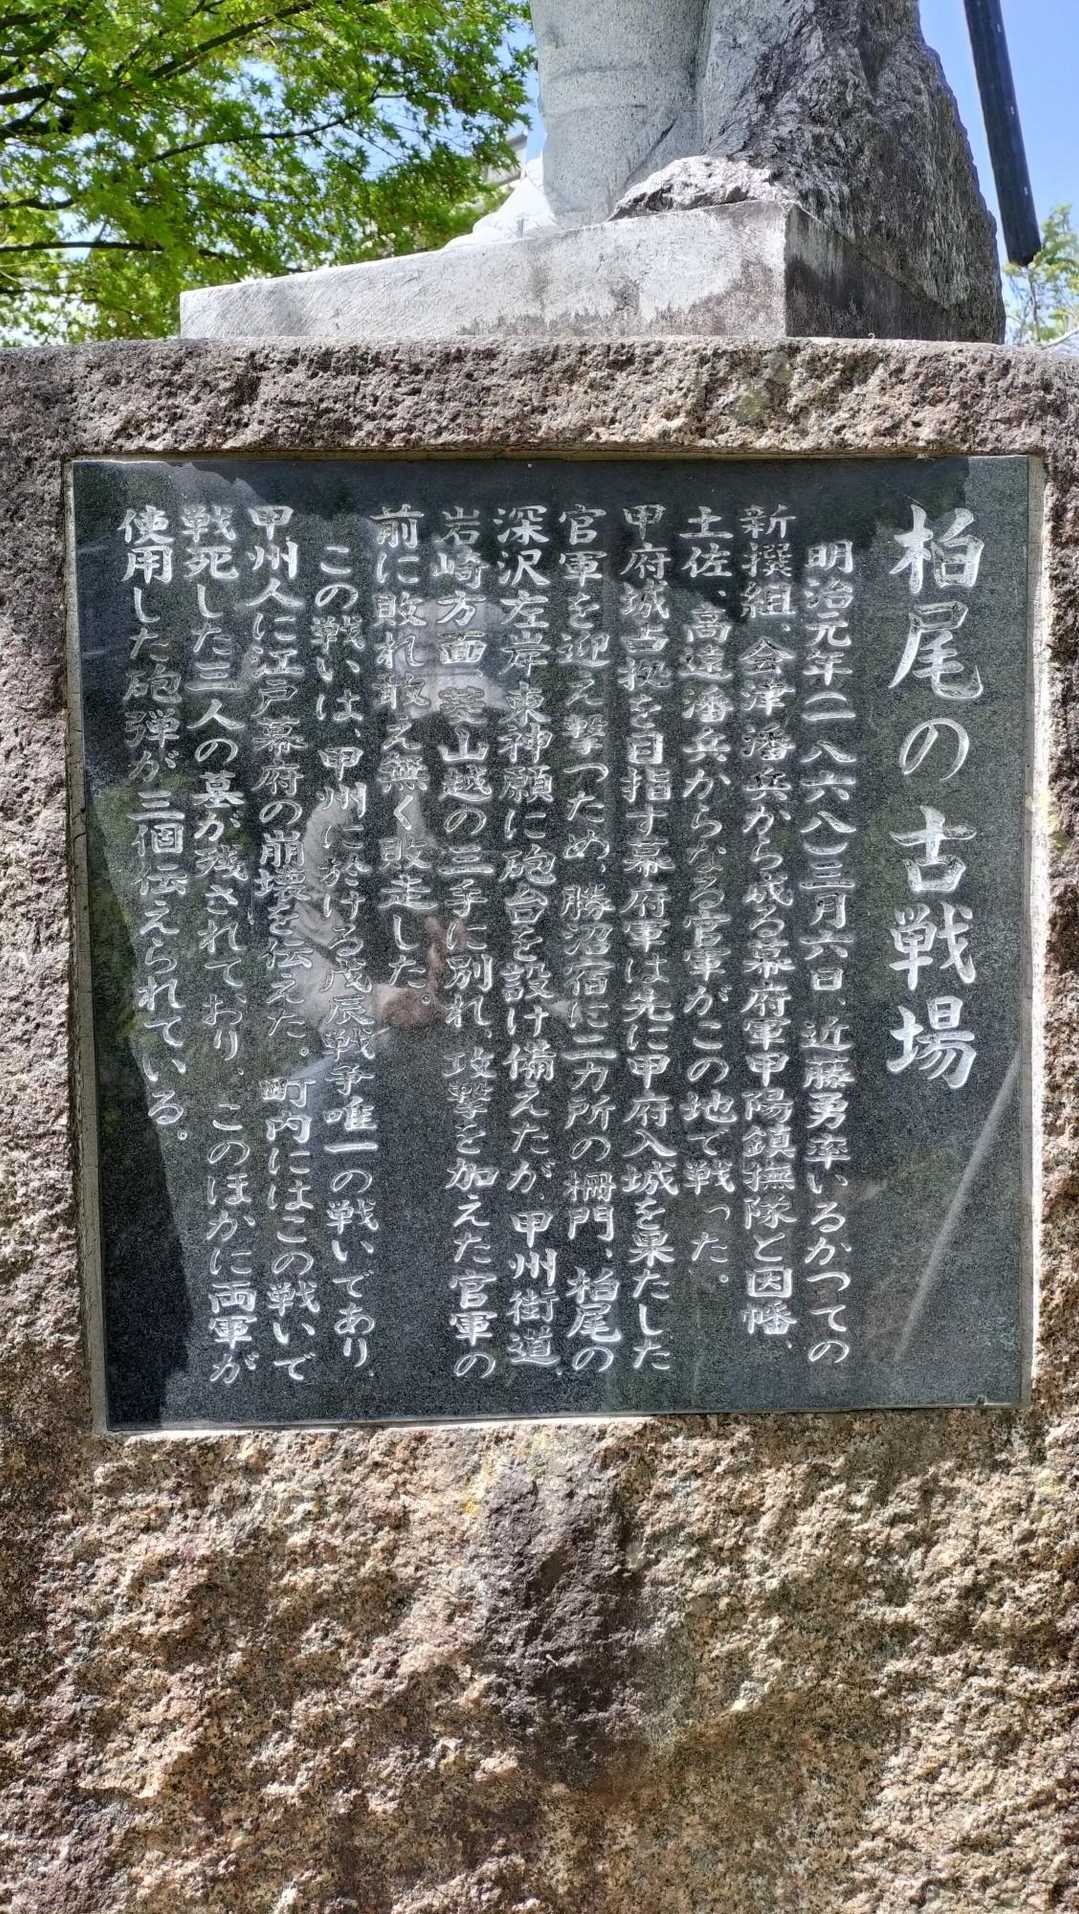 柏尾の古戦場
明治元年(一八六八)三月六日、近藤勇率いるかつての
新撰組、会津潘兵から成る幕府軍甲陽鎮撫隊と因幡、
土佐、高遠潘兵からなる官軍がこの地で戦った。
甲府城占拠を目指す幕府軍は先に甲府入城を果たした
官軍を迎え撃つため、勝沼宿に二カ所の柵門、柏尾の
深沢左岸東神願に砲台を設け備えたが、甲州街道、
岩崎方面、菱山越の三手に別れ、攻撃を加えた官軍の
前に敗れ敢え無く敗走した。
この戦いは、甲州に於ける戊辰戦争唯一の戦いであり、
甲州人に江戸幕府の崩壊を伝えた。町内にはこの戦いで
戦死した三人の墓が残されており、このほかに両軍が
使用した砲弾が三個伝えられている。